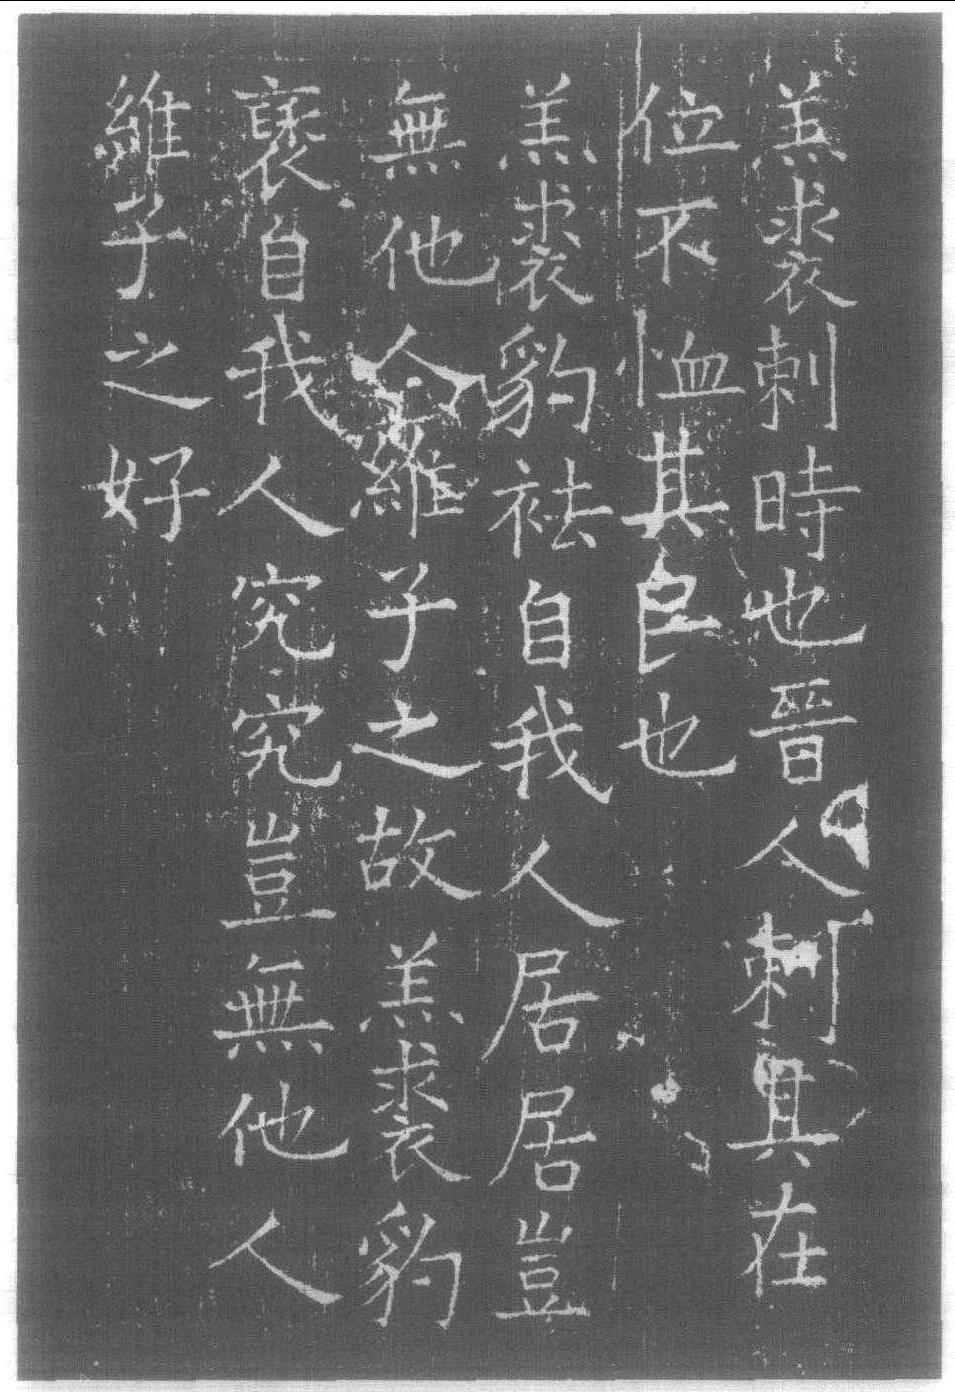 羔裘刺時也晉人刺其在
位不恤其民也
羔裘豹袪自我人居居豈
無他人維子之故羔裘豹
褎自我人究究豈無他人
維子之好